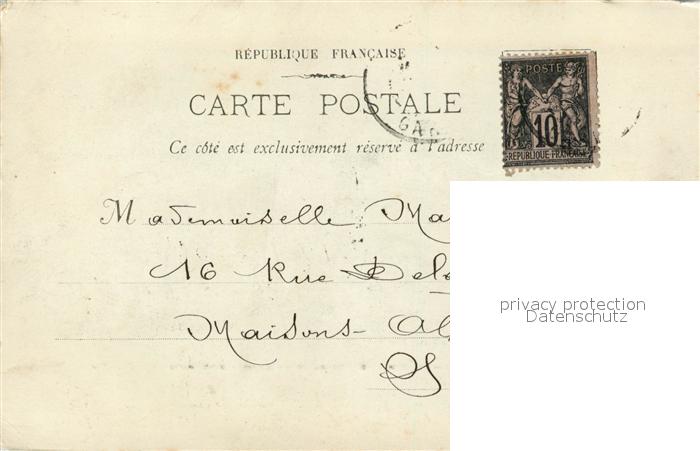 RÉPUBLIQUE FRANÇAISE
CARTE POSTALE
Ce côté est exclusivement réservé à l'adresse
POSTE
10
RÉPUBLIQUE FRANÇAISE
Mademoiselle Ma
16 Rue Dela
Maisons-Al
privacy protection
Datenschutz